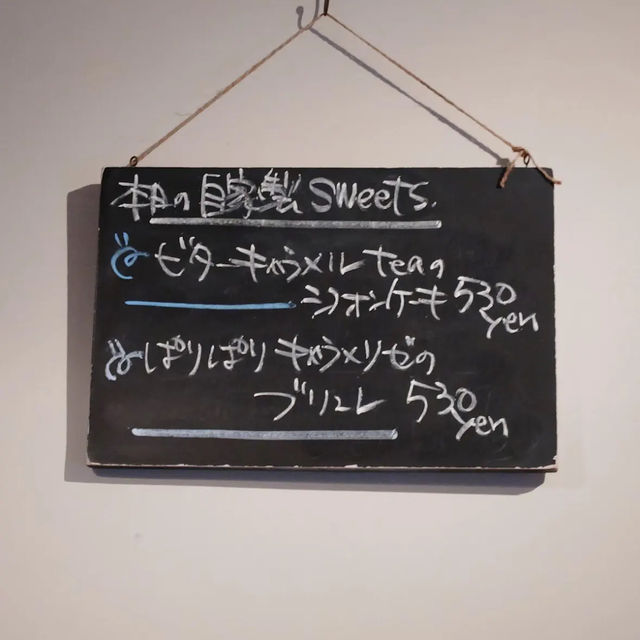 本日の自家製 Sweets.
ビターキャラメル teaの
シフォンケーキ 530
yen
ぱりぱりキャラメリゼの
ブリュレ 530
yen